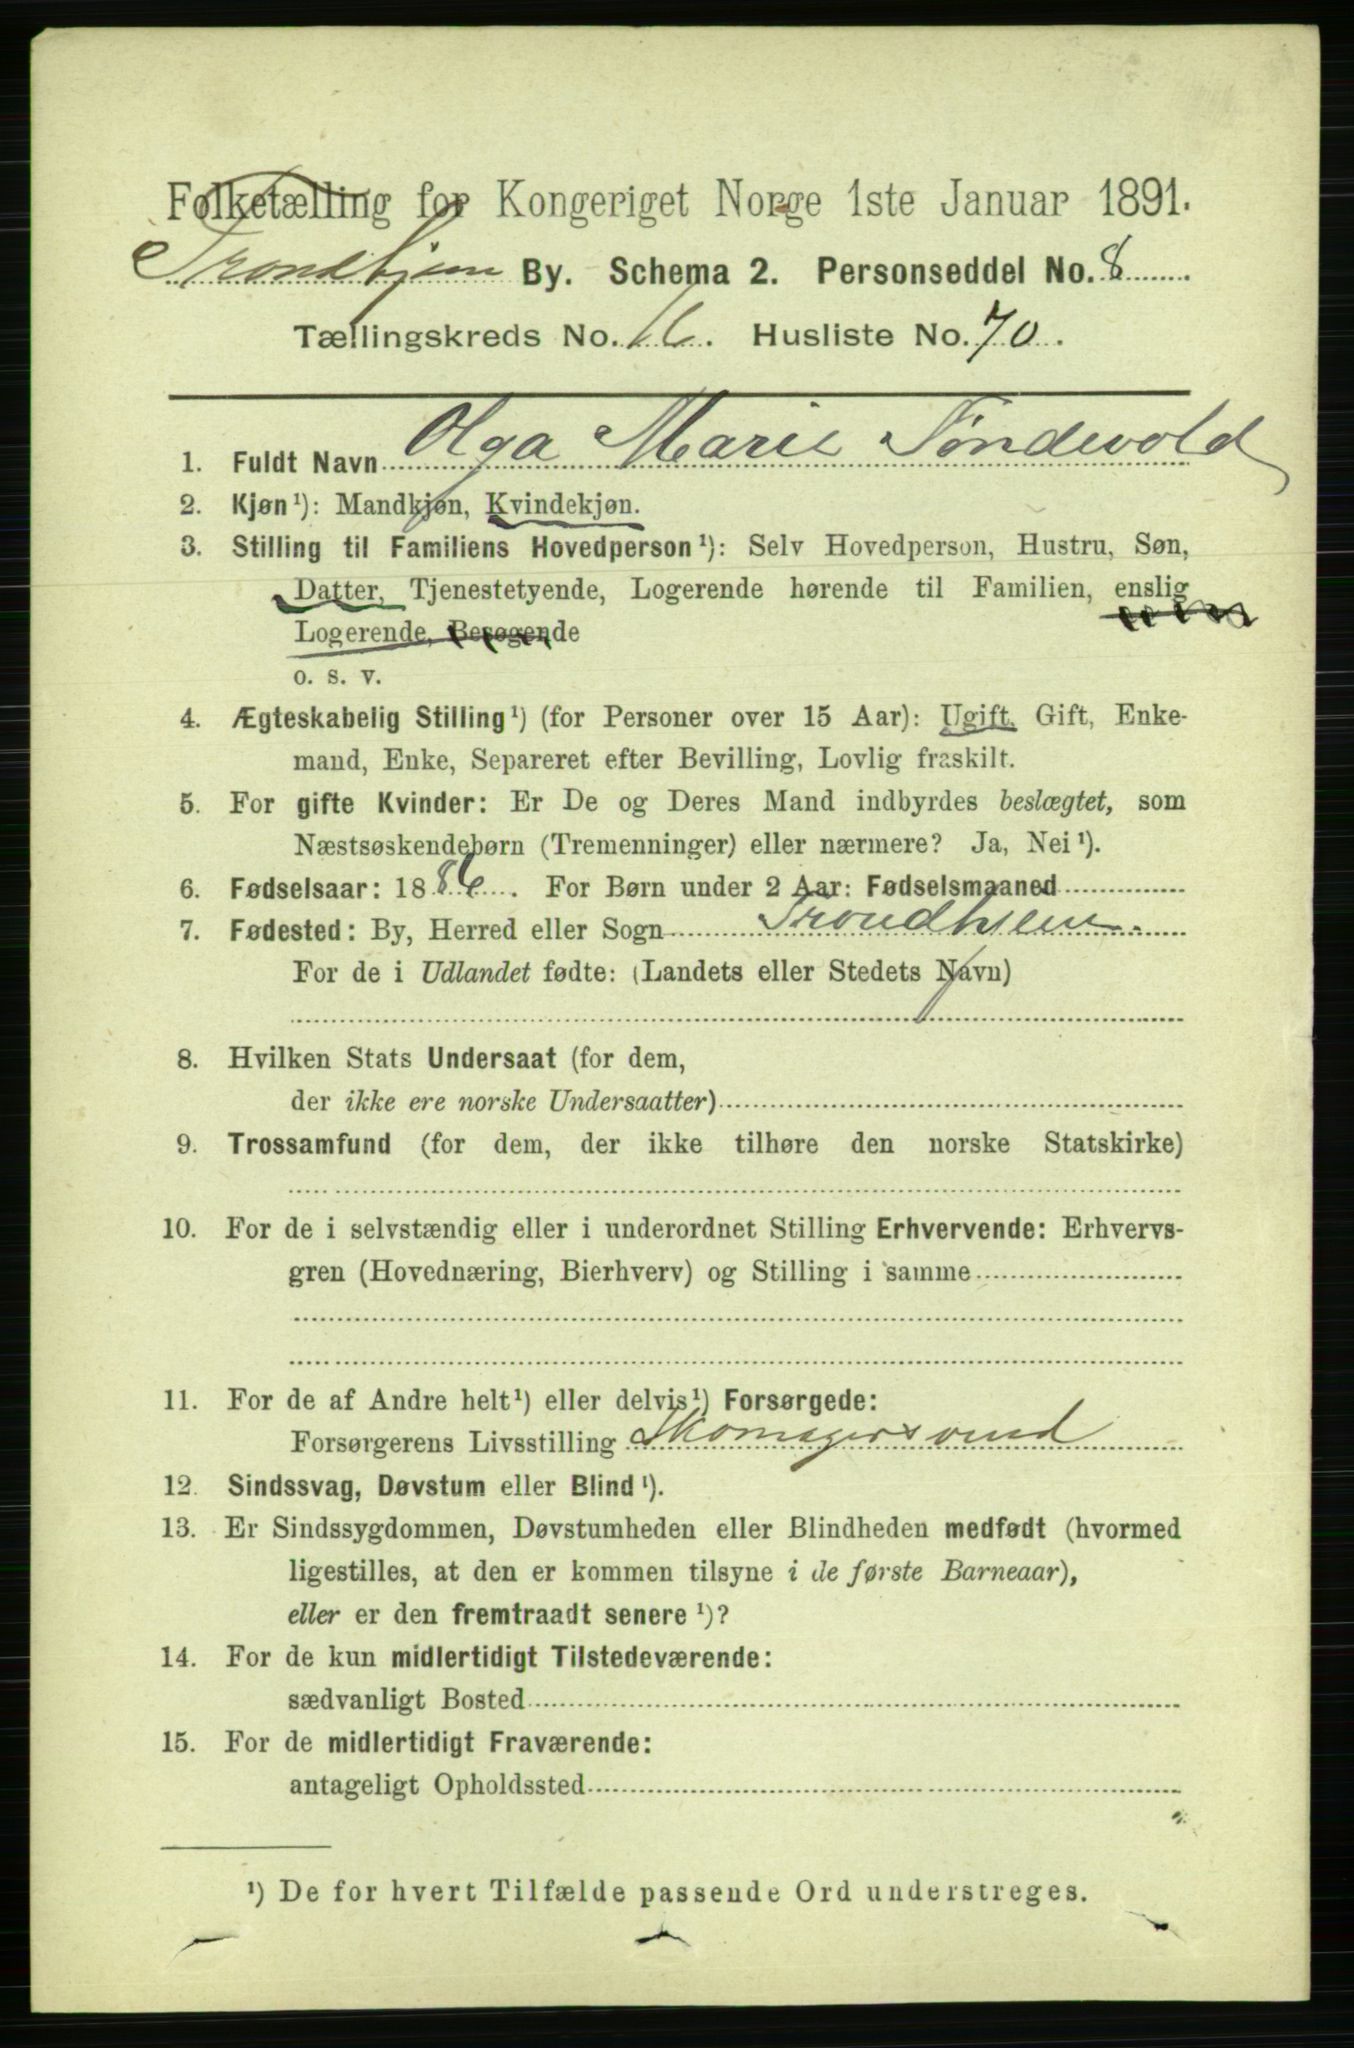 Folketælling for Kongeriget Norge 1ste Januar 1891.
Trondhjem By. Schema 2. Personseddel No. 8
Tællingskreds No. 16. Husliste No. 70.
1. Fuldt Navn Olga Marie Töndevold
2. Kjøn¹): Mandkjøn, Kvindekjøn.
3. Stilling til Familiens Hovedperson¹): Selv Hovedperson, Hustru, Søn,
Datter, Tjenestetyende, Logerende hørende til Familien, enslig
Logerende, Besøgende
o. s. v.
4. Ægteskabelig Stilling¹) (for Personer over 15 Aar): Ugift, Gift, Enke-
mand, Enke, Separeret efter Bevilling, Lovlig fraskilt.
5. For gifte Kvinder: Er De og Deres Mand indbyrdes beslægtet, som
Næstsøskendebørn (Tremenninger) eller nærmere? Ja, Nei¹).
6. Fødselsaar: 1886. For Børn under 2 Aar: Fødselsmaaned
7. Fødested: By, Herred eller Sogn Trondhjem.
For de i Udlandet fødte: (Landets eller Stedets Navn)
8. Hvilken Stats Undersaat (for dem,
der ikke ere norske Undersaatter)
9. Trossamfund (for dem, der ikke tilhøre den norske Statskirke)
10. For de i selvstændig eller i underordnet Stilling Erhvervende: Erhvervs-
gren (Hovednæring, Bierhverv) og Stilling i samme
11. For de af Andre helt¹) eller delvis¹) Forsørgede:
Forsørgerens Livsstilling Skomagersvend
12. Sindssvag, Døvstum eller Blind¹).
13. Er Sindssygdommen, Døvstumheden eller Blindheden medfødt (hvormed
ligestilles, at den er kommen tilsyne i de første Barneaar),
eller er den fremtraadt senere¹)?
14. For de kun midlertidigt Tilstedeværende:
sædvanligt Bosted
15. For de midlertidigt Fraværende:
antageligt Opholdssted
¹) De for hvert Tilfælde passende Ord understreges.